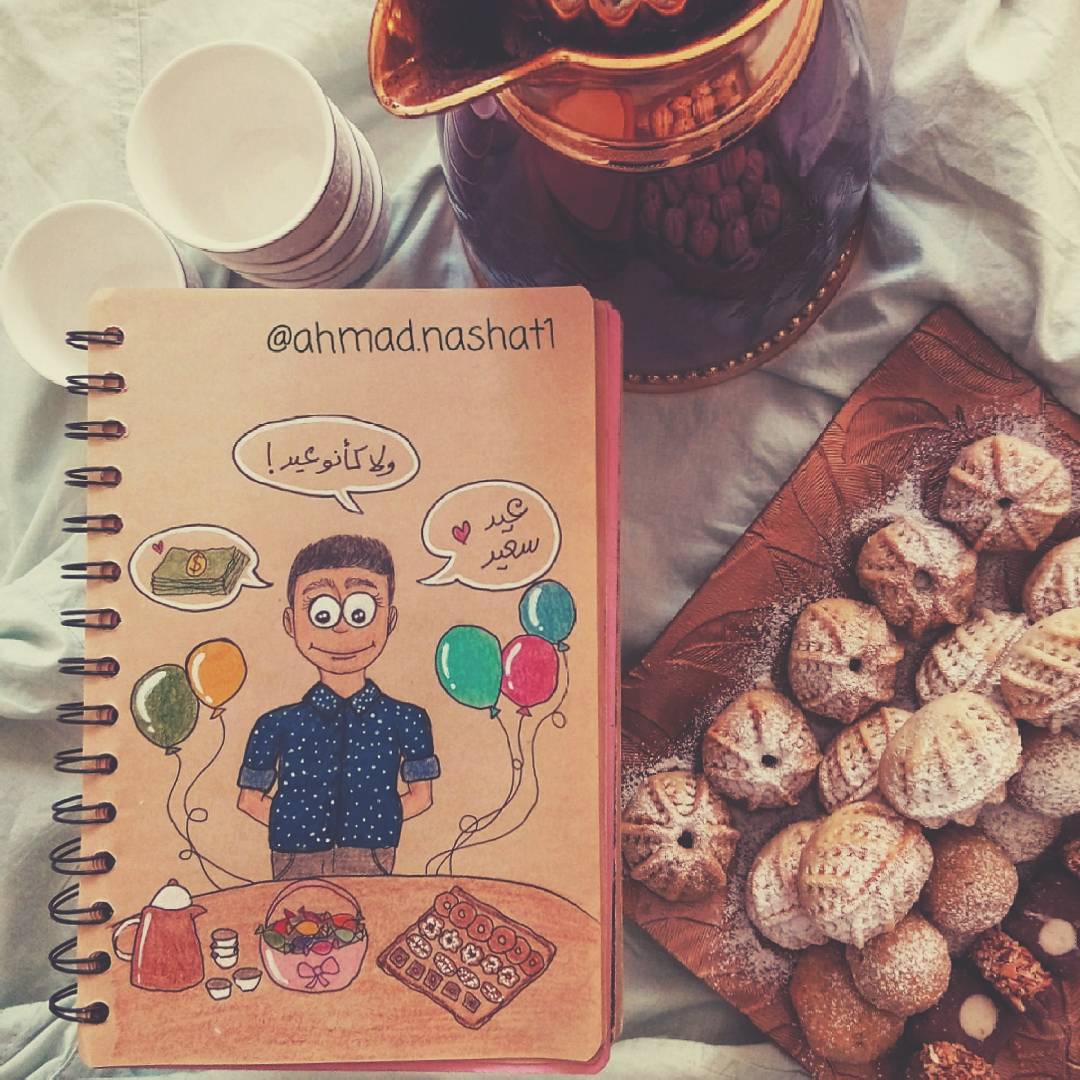 @ahmad.nashat1
ولا كأنو عيد !
عيد
سعيد
$